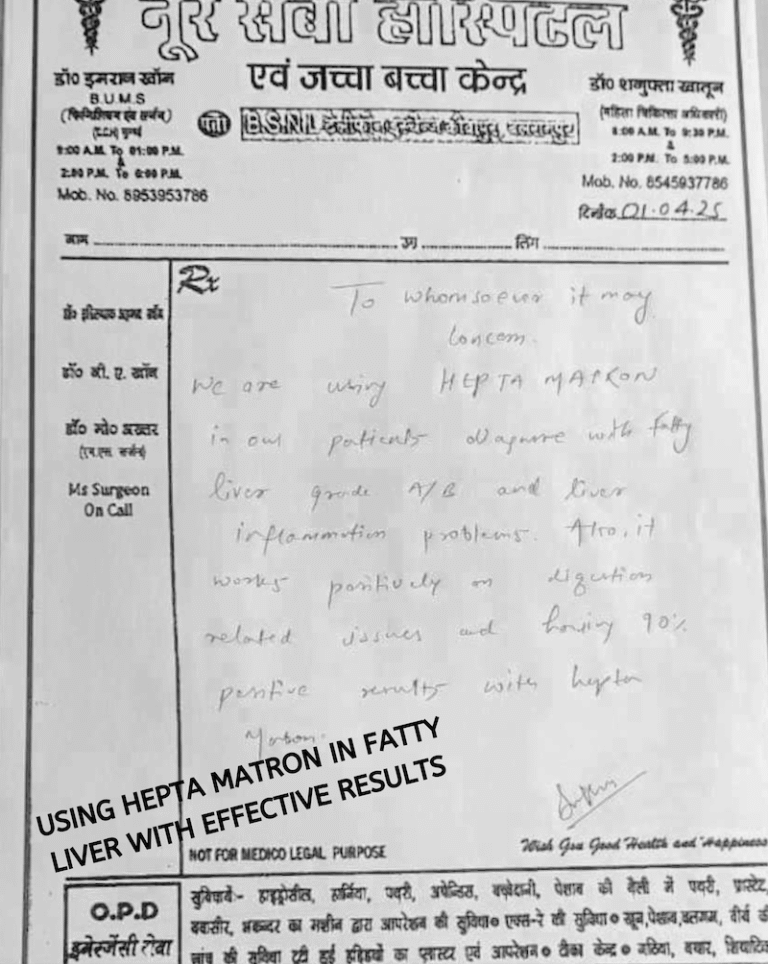 नूर सेवा हॉस्पिटल
एवं जच्चा बच्चा केन्द्र
डॉ० इमरान खॉन
B.U.M.S
(फिजिशियन एवं सर्जन)
9:00 A.M. To 01:00 P.M.
&
2:00 P.M. To 6:00 P.M.
Mob. No. 8953953786
B.S.N.L
डॉ० शगुफ्ता खातून
(महिला चिकित्सा अधिकारी)
2:00 P.M. To 5:00 P.M.
Mob. No. 8545937786
दिनाँक 01.04.25
नाम उम्र लिंग
Rx
To whomsoever it may
Concern.
We are using HEPTA MATRON
in our patients diagnose with fatty
liver grade A/B and liver
inflammation problems. Also, it
works positively on digestion
related issues and having 90%
positive results with hepta
Matron.
डॉ० जी. ए. खॉन
डॉ० मो० अख्तर
(एम.एस. सर्जन)
Ms Surgeon
On Call
USING HEPTA MATRON IN FATTY
LIVER WITH EFFECTIVE RESULTS
NOT FOR MEDICO LEGAL PURPOSE
Wish You Good Health and Happiness
O.P.D
इमेरजेंसी सेवा
सुविधायें:- हाइड्रोसील, हार्निया, पथरी, अपेन्डिस, बच्चेदानी, पेशाब की थैली में पथरी, प्रास्टेट,
बवासीर, भकन्दर का मशीन द्वारा आपरेशन की सुविधा० एक्स-रे की सुविधा० खून,पेशाब,बलगम, वीर्य की
जांच की सुविधा टूटी हुई हड्डियों का प्लास्टर एवं आपरेशन० टीका केन्द्र० गठिया,